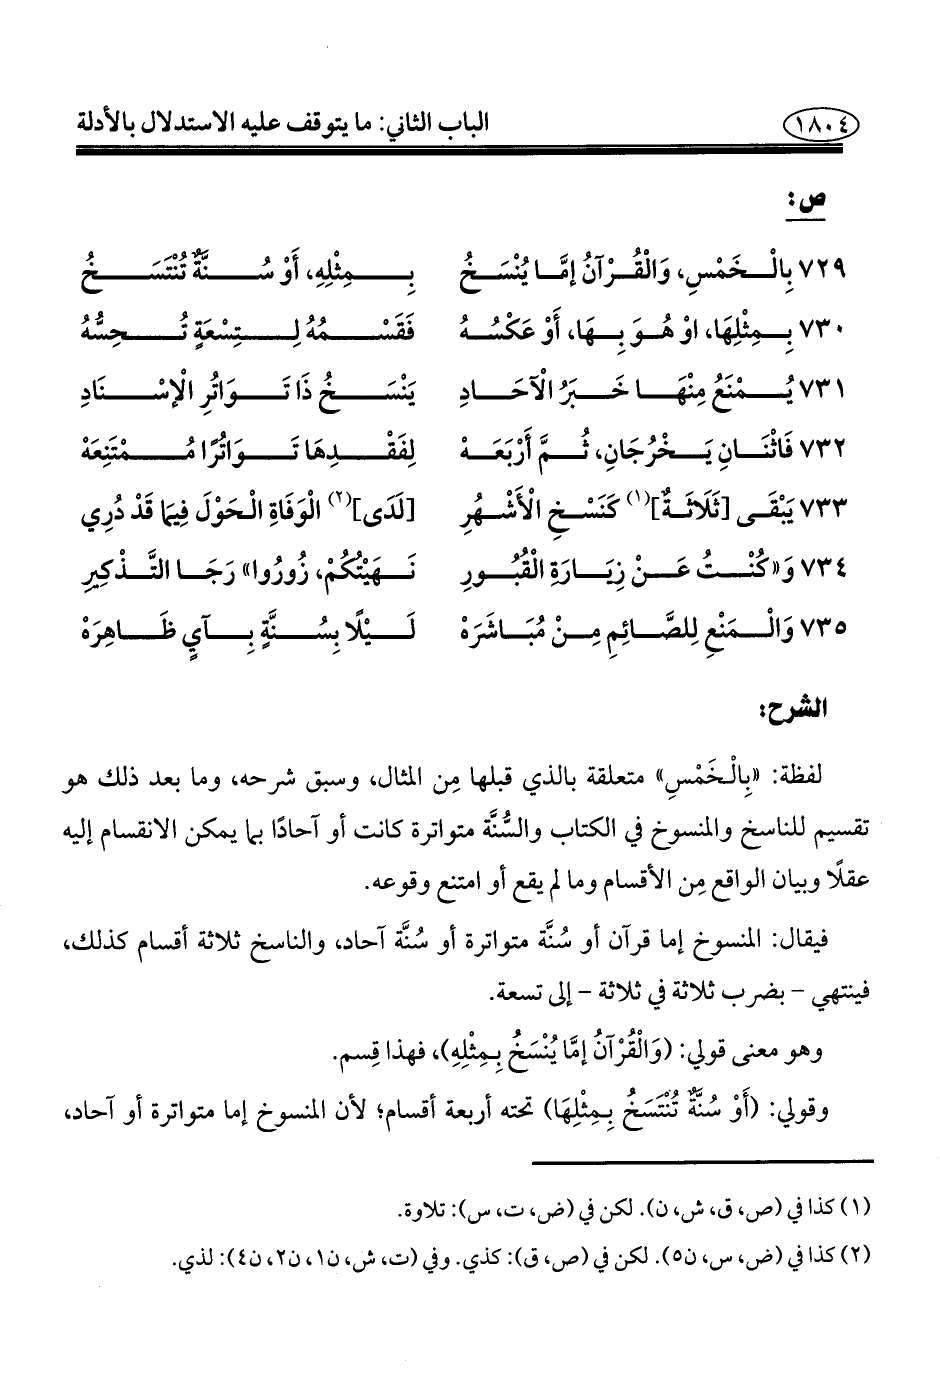 ١٨٠٤ الباب الثاني: ما يتوقف عليه الاستدلال بالأدلة
ص:
٧٢٩ بِالْخَمْسِ، وَالْقُرْآنُ إمَّا يُنْسَخُ بِمِثْلِهِ، أَوْ سُنَّةٌ تُنْتَسَخُ
٧٣٠ بِمِثْلِهَا، اوْ هُوَ بِهَا، أَوْ عَكْسُهُ فَقَسْمُهُ لِتِسْعَةٍ تُحِسُّهُ
٧٣١ يُمْنَعُ مِنْهَا خَبَرُ الْآحَادِ يَنْسَخُ ذَا تَوَاتُرِ الْإسْنَادِ
٧٣٢ فَاثْنَانِ يَخْرُجَانِ، ثُمَّ أَرْبَعَهْ لِفَقْدِهَا تَوَاتُرًا مُمْتَنِعَهْ
٧٣٣ يَبْقَى [ثَلَاثَةٌ](١) كَنَسْخِ الْأَشْهُرِ [لَدَى](٢) الْوَفَاةِ الْحَوْلَ فِيمَا قَدْ دُرِي
٧٣٤ وَ«كُنْتُ عَنْ زِيَارَةِ الْقُبُورِ نَهَيْتُكُمْ، زُورُوا» رَجَا التَّذْكِيرِ
٧٣٥ وَالْمَنْعِ لِلصَّائِمِ مِنْ مُبَاشَرَهْ لَيْلًا بِسُنَّةٍ بِآيٍ ظَاهِرَهْ
الشرح:
لفظة: «بِالْخَمْسِ» متعلقة بالذي قبلها مِن المثال، وسبق شرحه، وما بعد ذلك هو
تقسيم للناسخ والمنسوخ في الكتاب والسُّنَّة متواترة كانت أو آحادًا بما يمكن الانقسام إليه
عقلًا وبيان الواقع مِن الأقسام وما لم يقع أو امتنع وقوعه.
فيقال: المنسوخ إما قرآن أو سُنَّة متواترة أو سُنَّة آحاد، والناسخ ثلاثة أقسام كذلك،
فينتهي - بضرب ثلاثة في ثلاثة - إلى تسعة.
وهو معنى قولي: (وَالْقُرْآنُ إمَّا يُنْسَخُ بِمِثْلِهِ)، فهذا قِسم.
وقولي: (أَوْ سُنَّةٌ تُنْتَسَخُ بِمِثْلِهَا) تحته أربعة أقسام؛ لأن المنسوخ إما متواترة أو آحاد،
(١) كذا في (ص، ق، ش، ن). لكن في (ض، ت، س): تلاوة.
(٢) كذا في (ض، س، ن٥). لكن في (ص، ق): كذي. وفي (ت، ش، ن١، ن٢، ن٤): لذي.